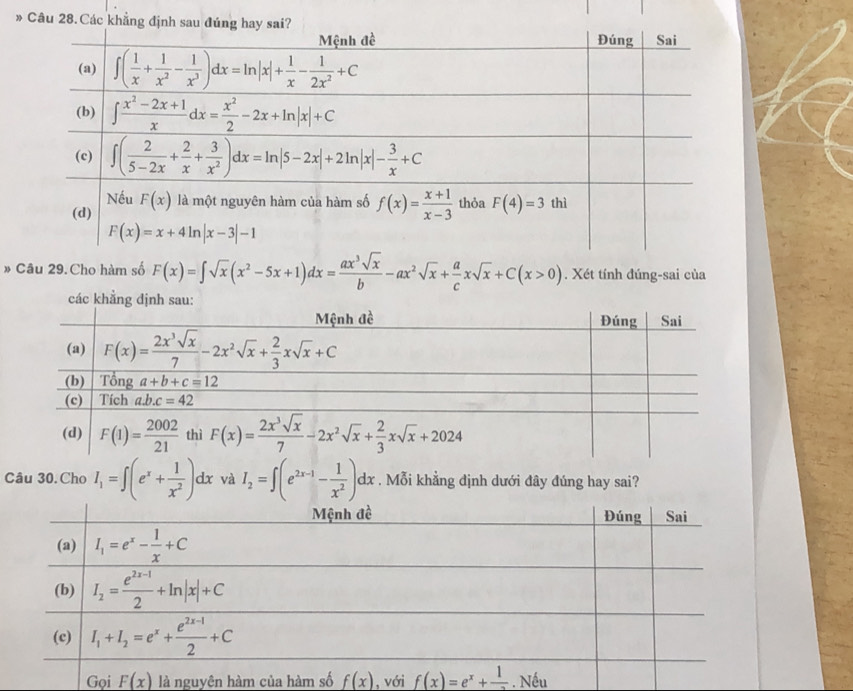 » Câu 28. Các khẳng định sau đúng hay sai?
Mệnh đề Đúng Sai
(a) ∫(1/x + 1/x² − 1/x³)dx = ln|x| + 1/x − 1/(2x²) + C
(b) ∫(x² − 2x + 1)/x dx = x²/2 − 2x + ln|x| + C
(c) ∫(2/(5 − 2x) + 2/x + 3/x²)dx = ln|5 − 2x| + 2ln|x| − 3/x + C
(d) Nếu F(x) là một nguyên hàm của hàm số f(x) = (x + 1)/(x − 3) thỏa F(4) = 3 thì
F(x) = x + 4ln|x − 3| − 1
» Câu 29. Cho hàm số F(x) = ∫√x(x² − 5x + 1)dx = ax³√x/b − ax²√x + (a/c)x√x + C(x > 0). Xét tính đúng-sai của
các khẳng định sau:
Mệnh đề Đúng Sai
(a) F(x) = 2x³√x/7 − 2x²√x + (2/3)x√x + C
(b) Tổng a + b + c = 12
(c) Tích a.b.c = 42
(d) F(1) = 2002/21 thì F(x) = 2x³√x/7 − 2x²√x + (2/3)x√x + 2024
Câu 30. Cho I₁ = ∫(eˣ + 1/x²)dx và I₂ = ∫(e²ˣ⁻¹ − 1/x²)dx. Mỗi khẳng định dưới đây đúng hay sai?
Mệnh đề Đúng Sai
(a) I₁ = eˣ − 1/x + C
(b) I₂ = e²ˣ⁻¹/2 + ln|x| + C
(c) I₁ + I₂ = eˣ + e²ˣ⁻¹/2 + C
Gọi F(x) là nguyên hàm của hàm số f(x), với f(x) = eˣ + 1/. Nếu